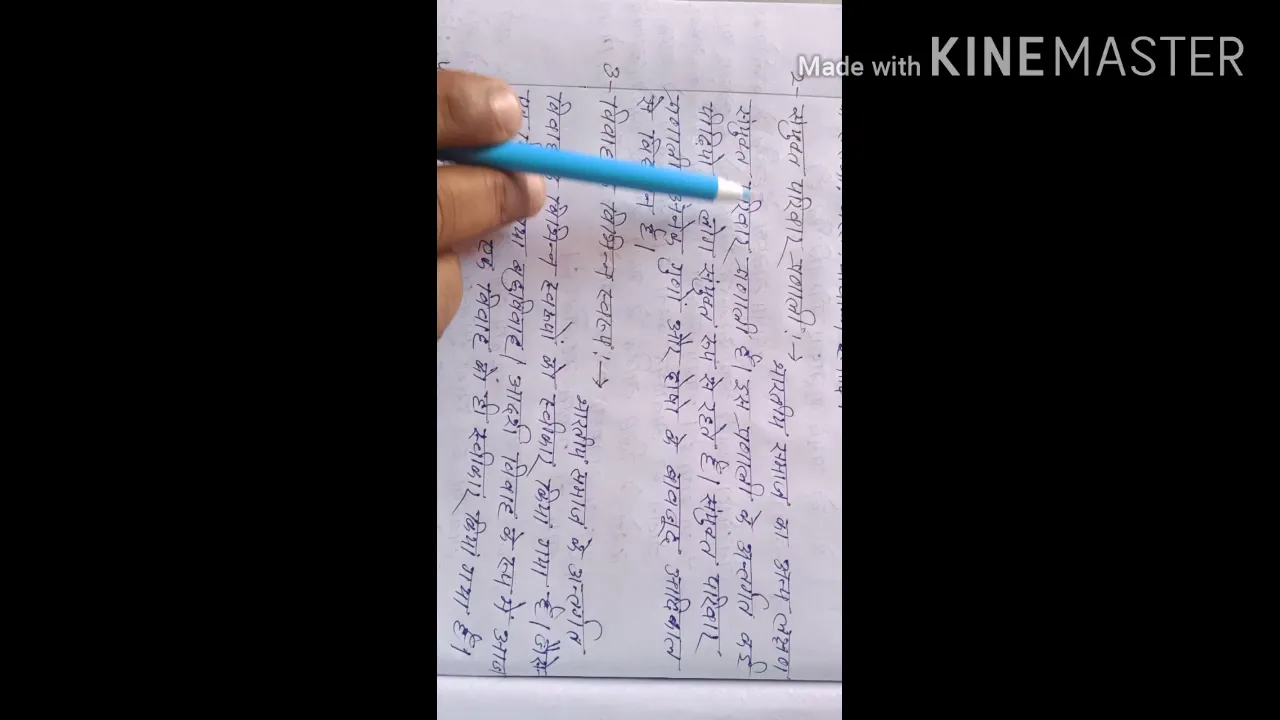 Made with KINEMASTER
2- संयुक्त परिवार प्रणाली :→
भारतीय समाज का अन्य लक्षण
संयुक्त परिवार प्रणाली है। इस प्रणाली के अन्तर्गत कई
पीढ़ियों लोग संयुक्त रूप से रहते हैं। संयुक्त परिवार
प्रणाली अनेक गुणों और दोषों के बावजूद आदिकाल
से है।
3- विवाह विभिन्न स्वरूप :→
भारतीय समाज के अन्तर्गत
विवाह विभिन्न स्वरूपों को स्वीकार किया गया है। जैसे
बहुविवाह। आदर्श विवाह के रूप में आज
एक विवाह को ही स्वीकार किया गया है।